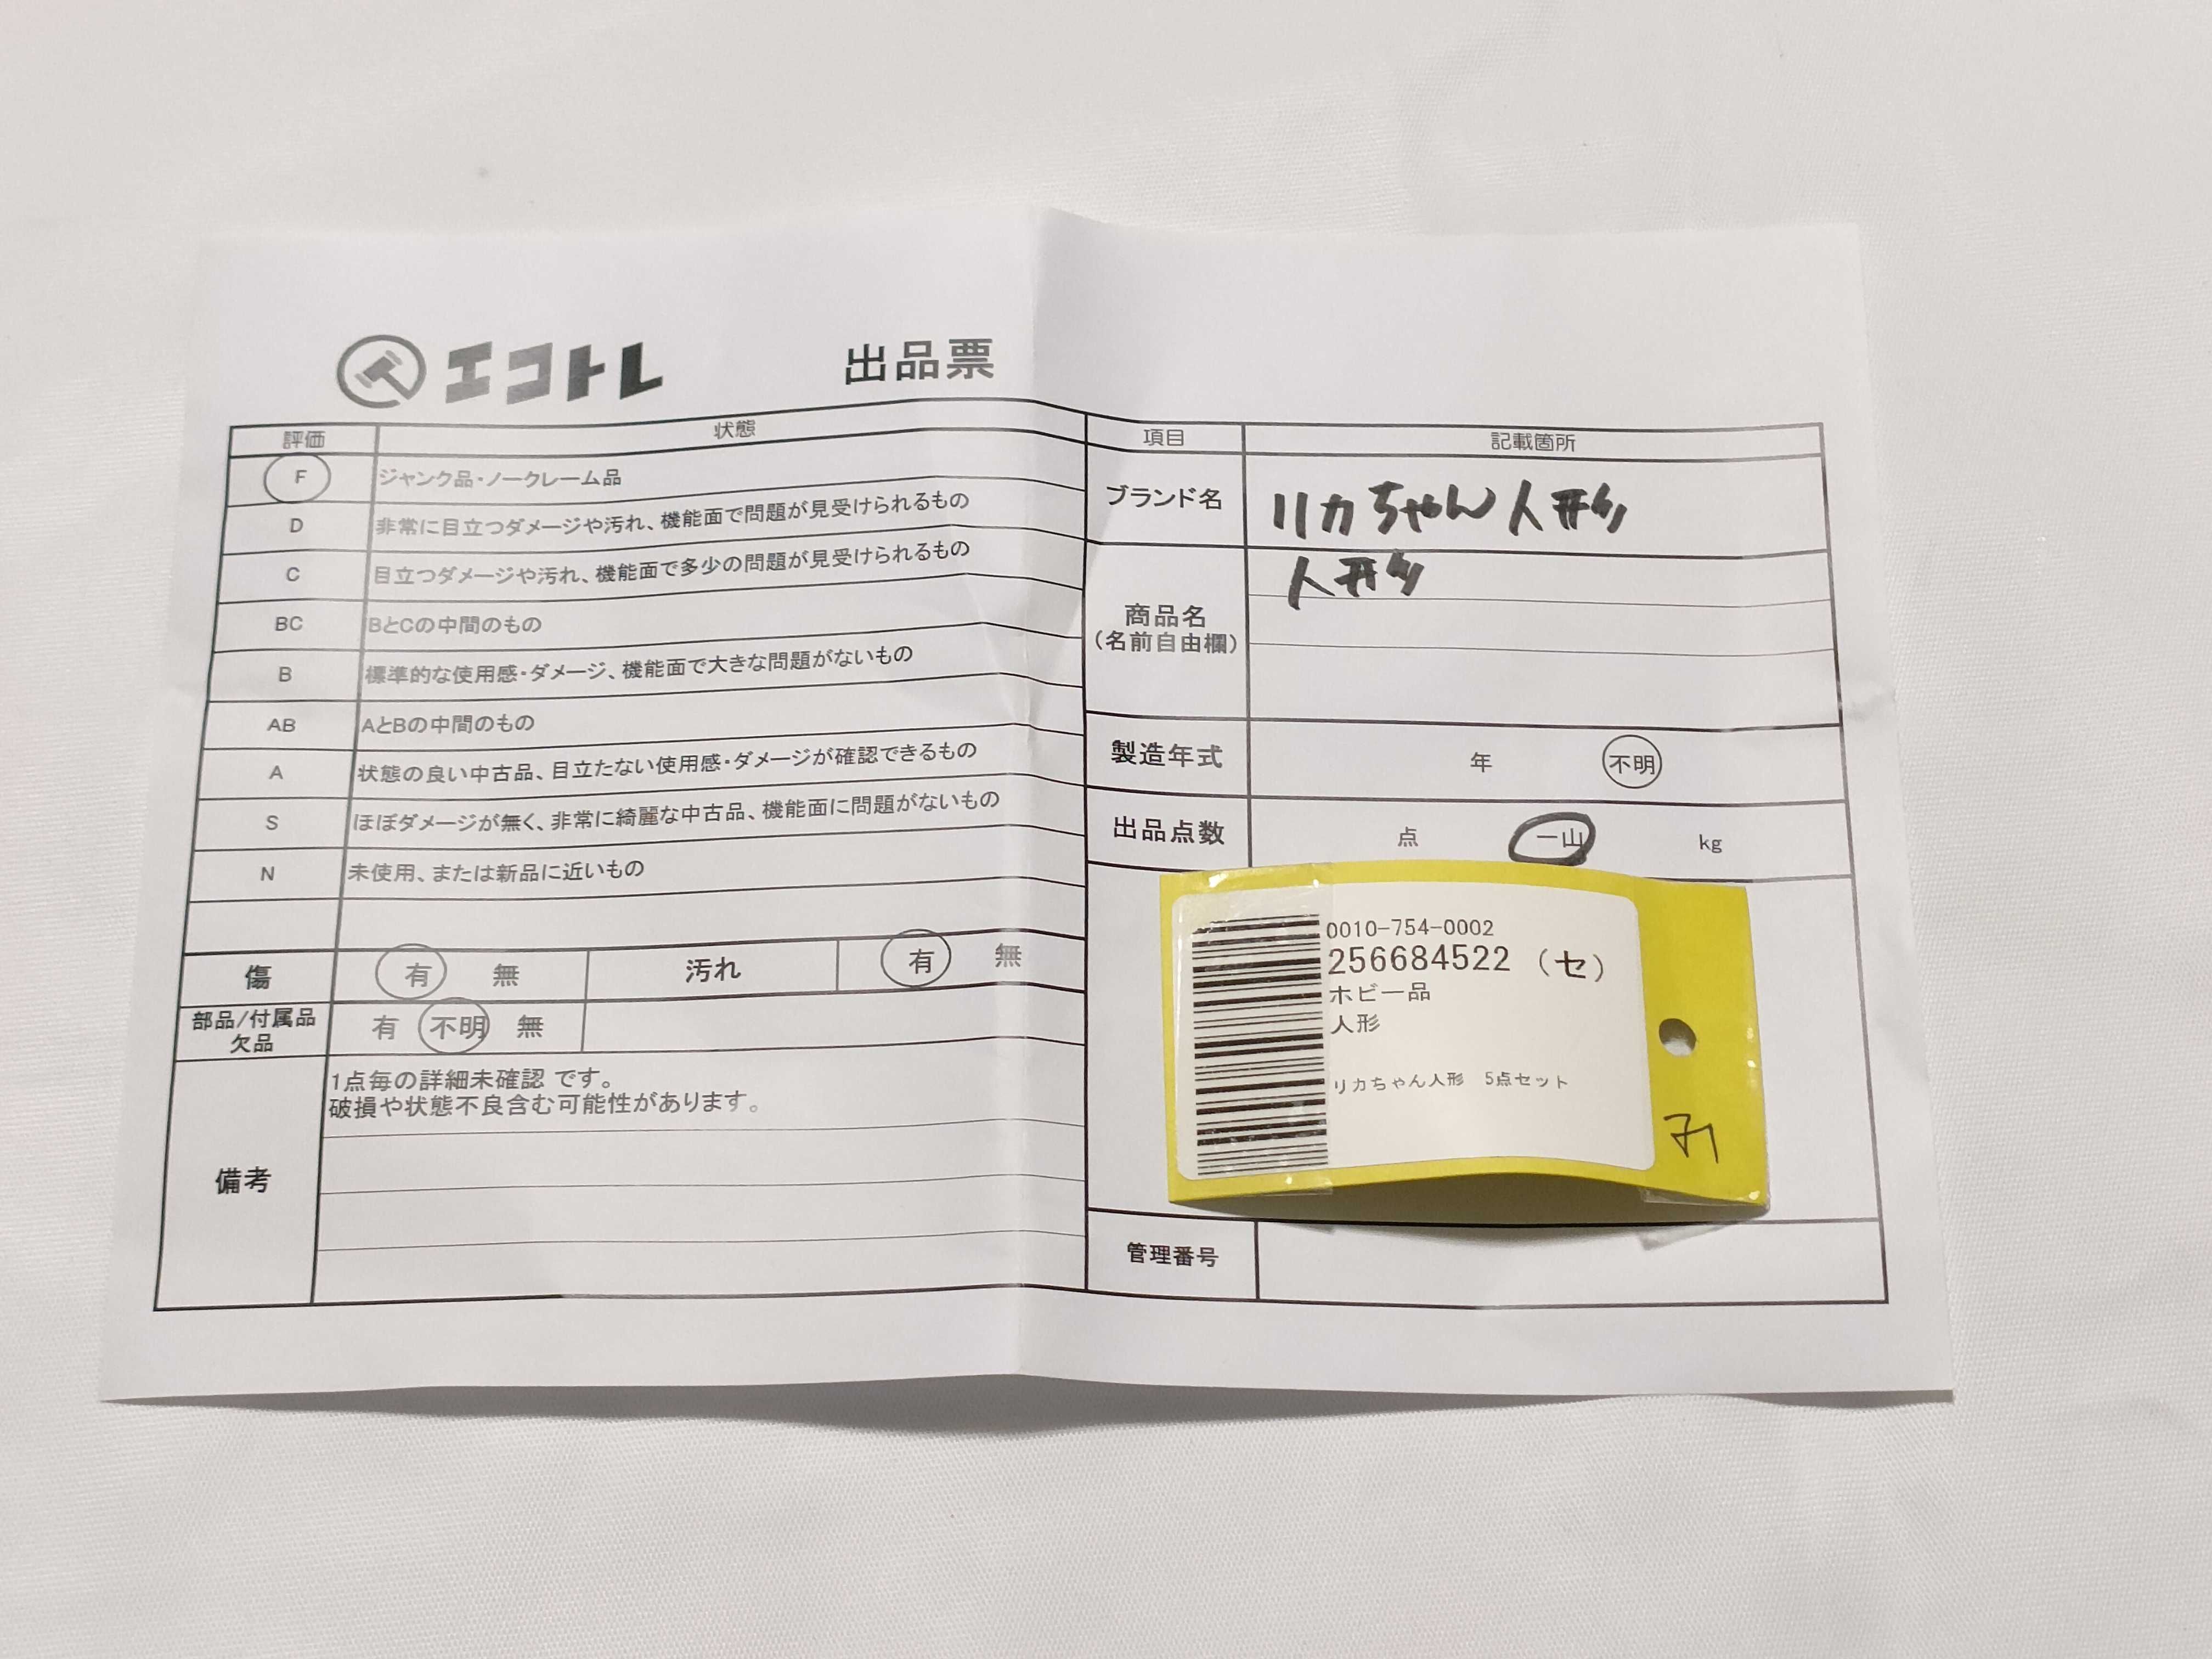 エコトレ 出品票
評価 状態
F ジャンク品・ノークレーム品
D 非常に目立つダメージや汚れ、機能面で問題が見受けられるもの
C 目立つダメージや汚れ、機能面で多少の問題が見受けられるもの
BC BとCの中間のもの
B 標準的な使用感・ダメージ、機能面で大きな問題がないもの
AB AとBの中間のもの
A 状態の良い中古品、目立たない使用感・ダメージが確認できるもの
S ほぼダメージが無く、非常に綺麗な中古品、機能面に問題がないもの
N 未使用、または新品に近いもの
傷 有 無 汚れ 有 無
部品/付属品
欠品 有 不明 無
備考
1点毎の詳細未確認 です。
破損や状態不良含む可能性があります。
項目 記載箇所
ブランド名 リカちゃん人形
商品名
(名前自由欄)
人形
製造年式 年 不明
出品点数 点 一山 kg
0010-754-0002
256684522 (セ)
ホビー品
人形
リカちゃん人形 5点セット
管理番号